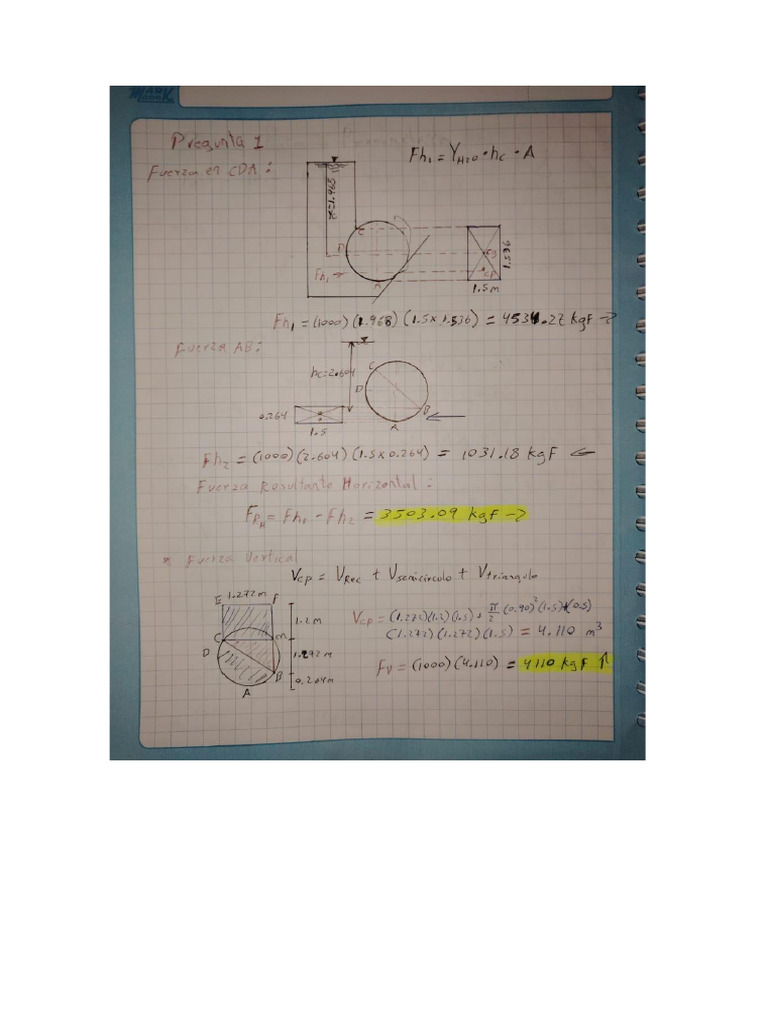 Pregunta 1
Fh₁ = γH₂O · hc · A
Fuerza en CDA:
C
D
Fh₁ →
A
cg
cp
1.536
1.5 m
Fh₁ = (1000)(1.968)(1.5x1.536) = 4534.27 kgF →
Fuerza AB:
hc=2.604
C
D
B
A
0.264
1.5
Fh₂ = (1000)(2.604)(1.5x0.264) = 1031.18 kgF ←
Fuerza Resultante Horizontal:
FRH = Fh₁ - Fh₂ = 3503.09 kgF →
* Fuerza Vertical
Vcp = VRec + Vsemicirculo + Vtriangulo
E 1.272m F
1.2m
C m
D
1.272m
B
0.264m
A
Vcp = (1.272)(1.2)(1.5) + π/2 (0.90)²(1.5)+(0.5)
(1.272)(1.272)(1.5) = 4.110 m³
Fv = (1000)(4.110) = 4110 kgF ↑